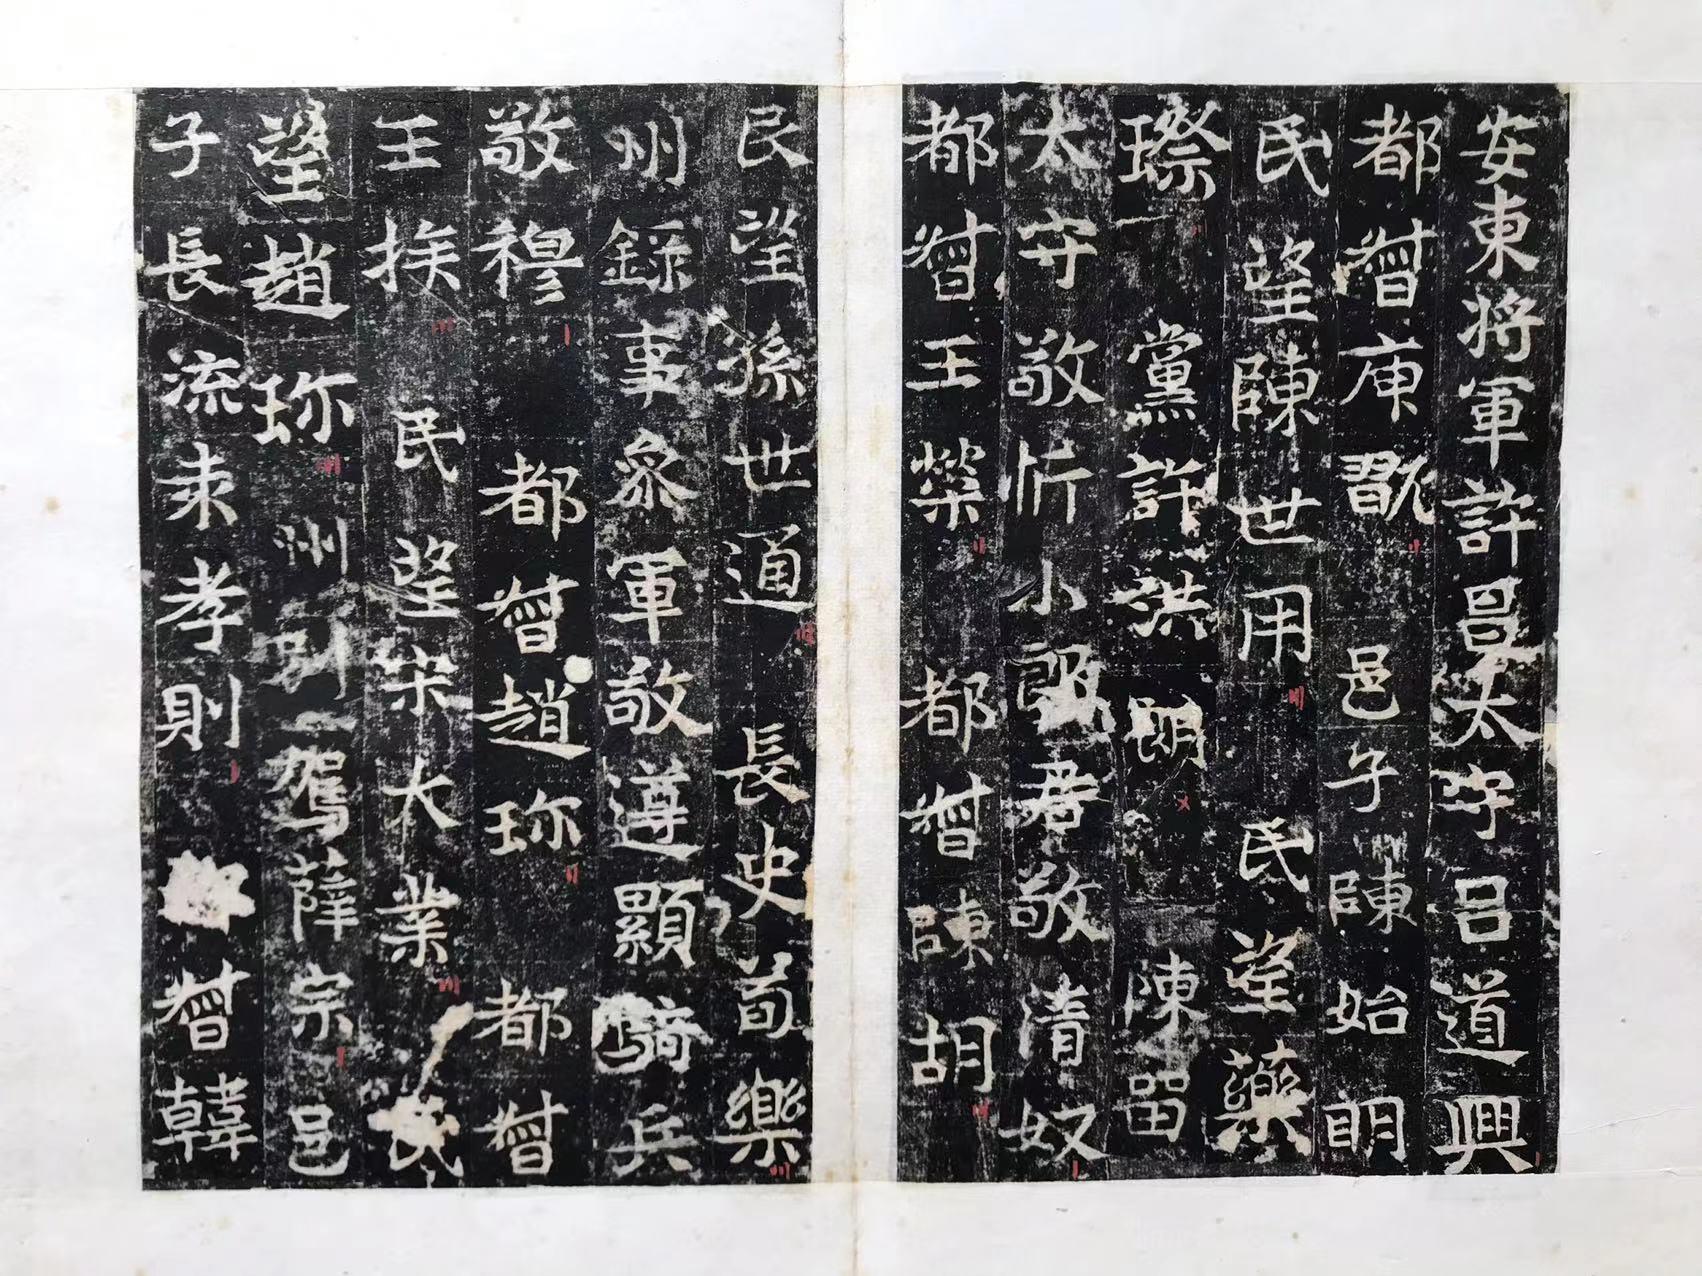 安東將軍許昌太守呂道興
都督庾翫邑子陳始明
民望陳世用民望藥
璨黨許洪朗陳留
太守敬忻小郎君敬清奴
都督王榮都督陳胡
民望孫世通長史荀樂
州錄事參軍敬遵顯騎兵
敬穆都督趙珎都督
王挨民望宋大業民
望趙珎州別駕薛宗邑
子長流耒孝則督韓